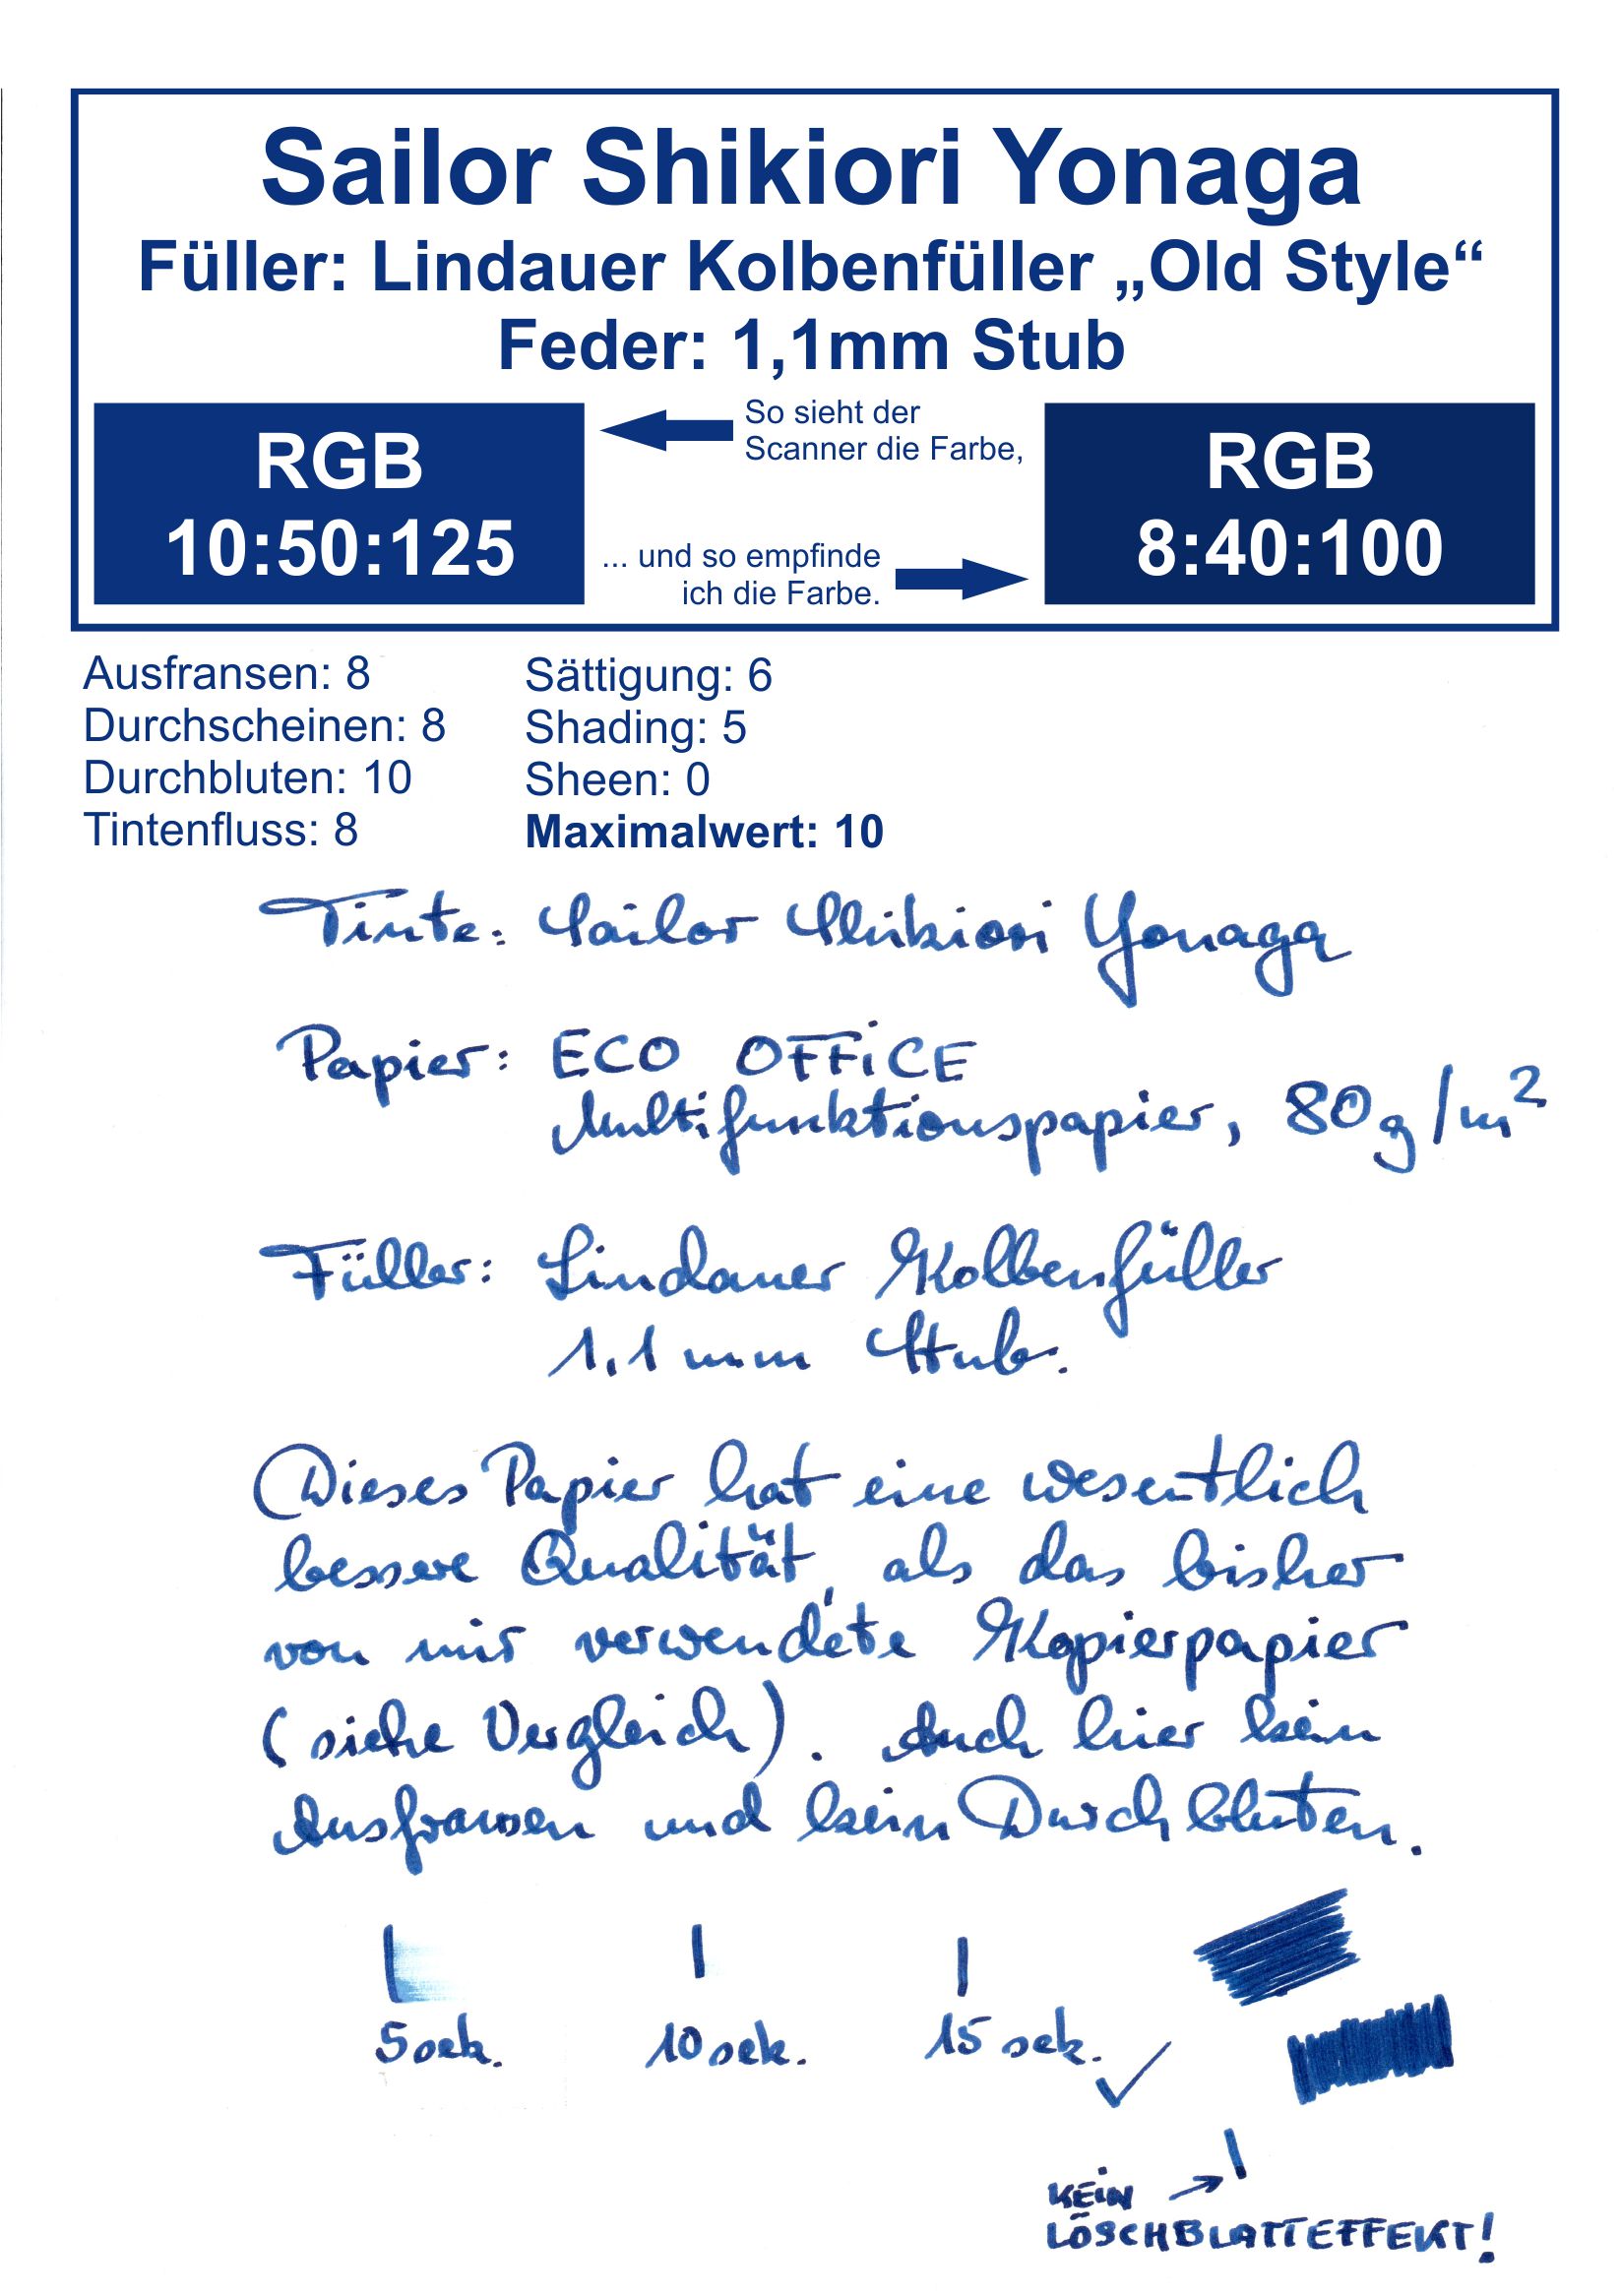 Sailor Shikiori Yonaga
Füller: Lindauer Kolbenfüller „Old Style“
Feder: 1,1mm Stub
RGB
10:50:125
So sieht der
Scanner die Farbe,
... und so empfinde
ich die Farbe.
RGB
8:40:100
Ausfransen: 8
Durchscheinen: 8
Durchbluten: 10
Tintenfluss: 8
Sättigung: 6
Shading: 5
Sheen: 0
Maximalwert: 10
Tinte: Sailor Shikiori Yonaga
Papier: ECO OFFiCE
Multifunktionspapier, 80g/m²
Füller: Lindauer Kolbenfüller
1,1mm Stub.
Dieses Papier hat eine wesentlich
bessere Qualität, als das bisher
von mir verwendete Kopierpapier
(siehe Vergleich). Auch hier kein
Ausfransen und kein Durchbluten.
5sek.
10sek.
15sek. ✓
KEiN →
LÖSCHBLATTEFFEKT!